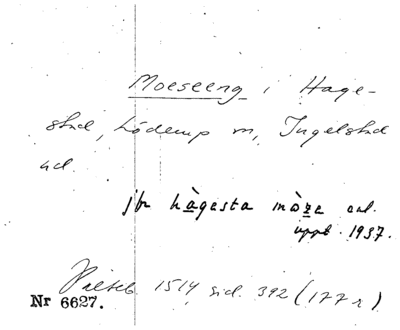 Moeseeng i Hage-
stad, Löderup sn, Ingelstad
hd.
jfr hàgesta mòze enl.
uppt. 1937.
Palteb. 1514 sid. 392 (177 r)
Nr 6627.